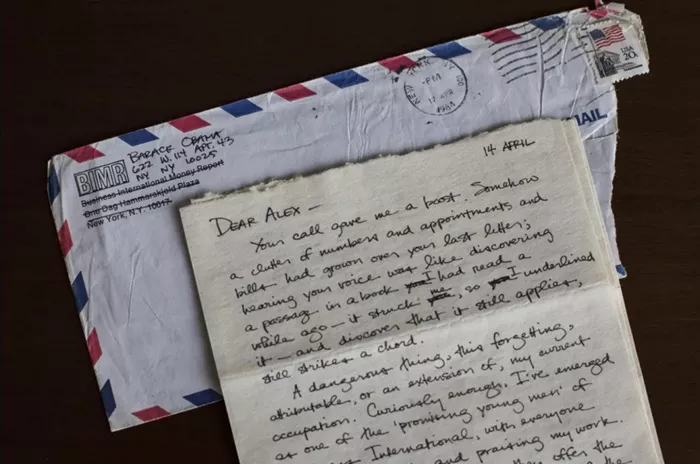 BARACK OBAMA
622 W. 114 APT. 43
NY NY 10025
BIMR
Business International Money Report
One Dag Hammarskjold Plaza
New York, N.Y. 10017
NEW YORK
PM
17 APR
1984
USA
20c
MAIL
14 APRIL
DEAR ALEX —
Your call gave me a boost. Somehow
a clutter of numbers and appointments and
bills had grown over your last letter;
hearing your voice was like discovering
a passage in a book you I had read a
while ago — it struck you, me, so you I underlined
it — and discover that it still applies,
still strikes a chord.
A dangerous thing, this forgetting,
attributable, or an extension of, my current
occupation. Curiously enough, I've emerged
as one of the 'promising young men' of
International, with everyone
and praising my work.
offer the
the